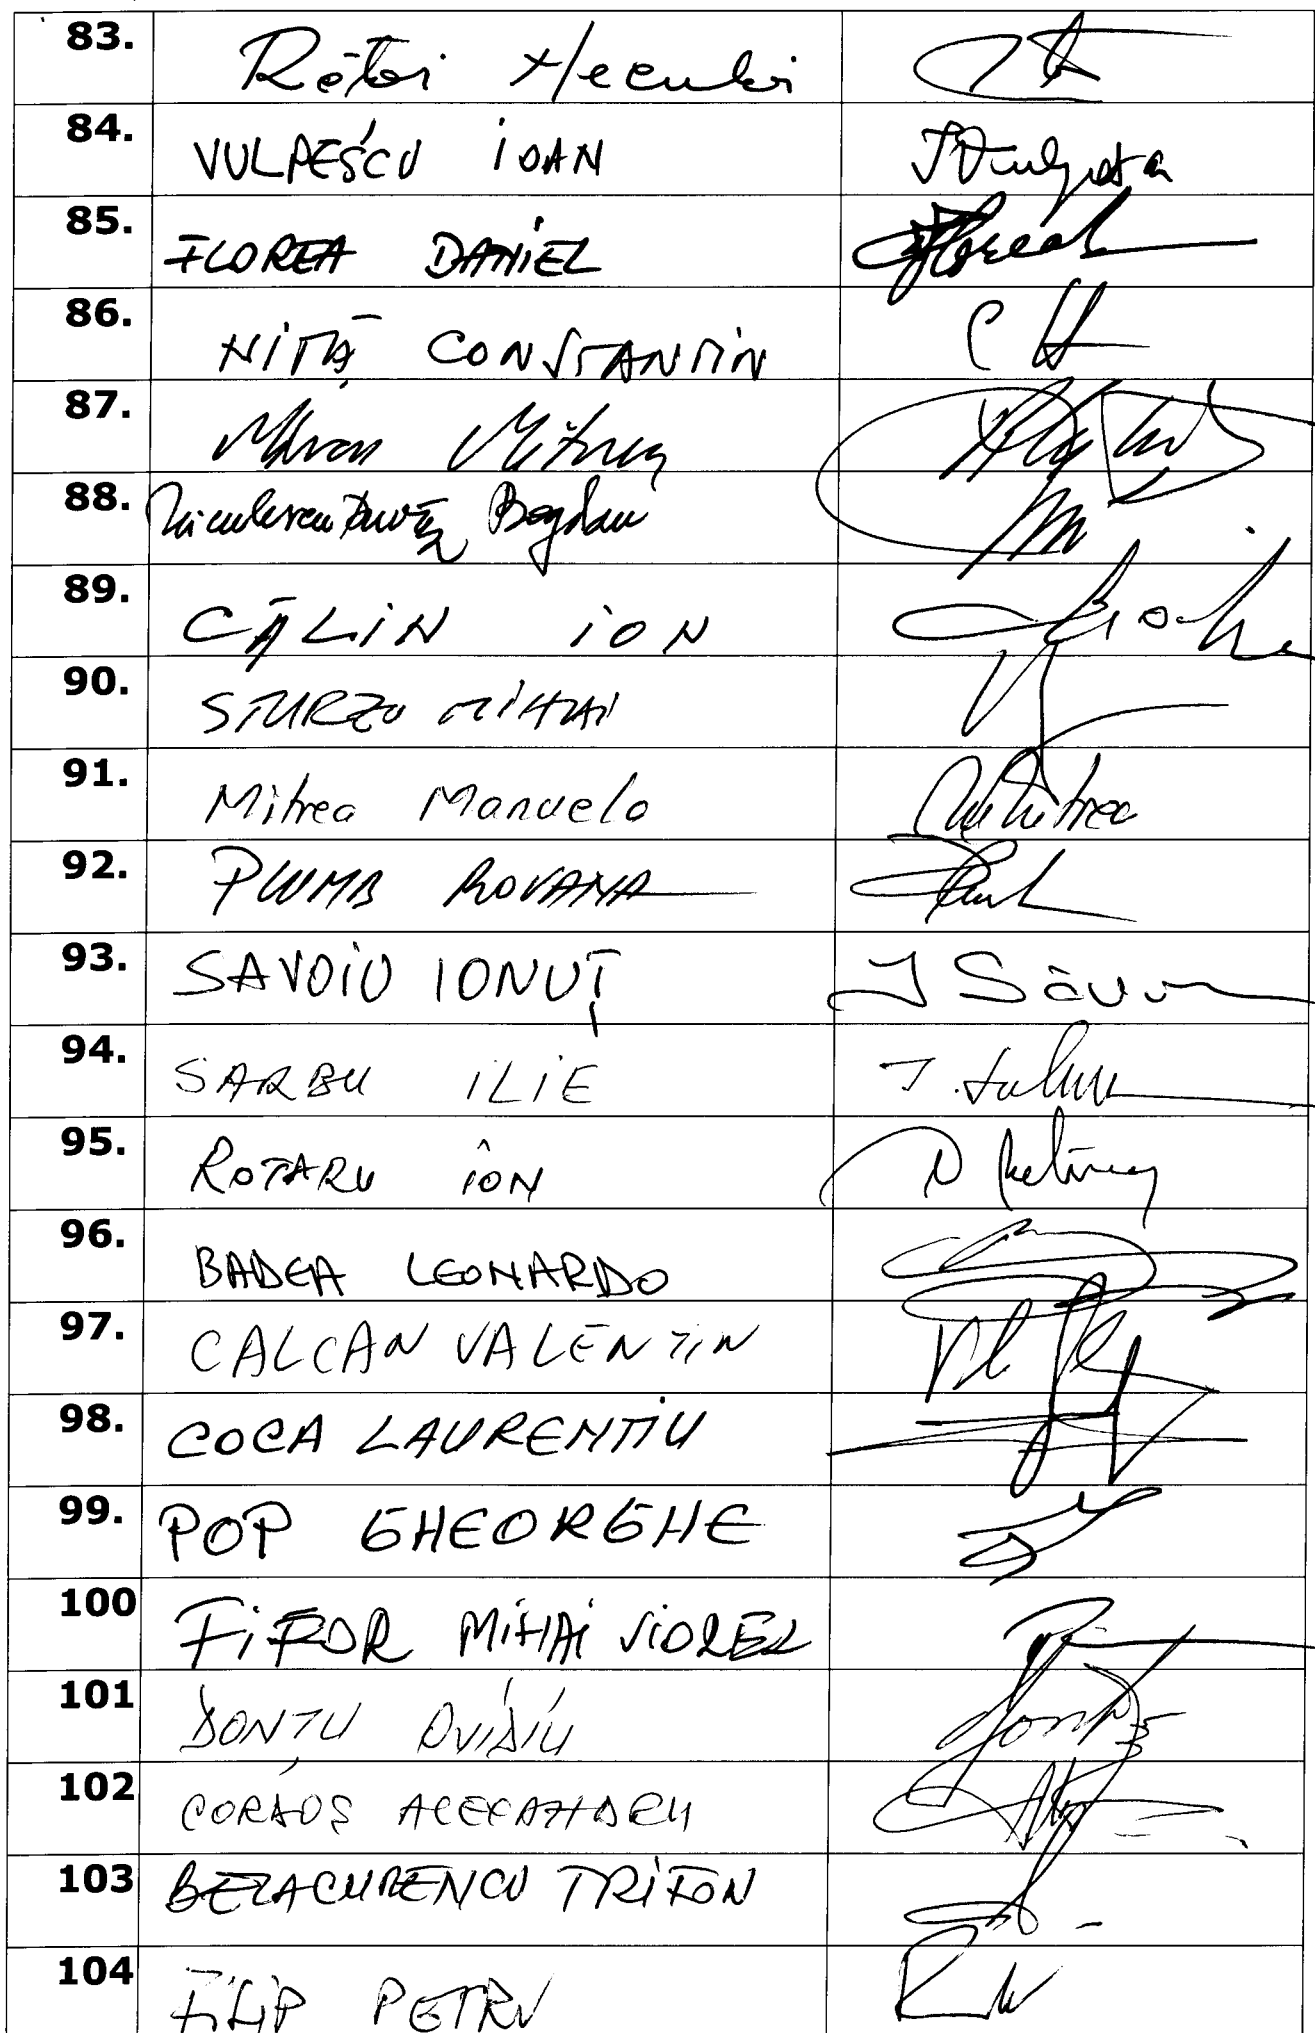 83. Rățoi
84. VULPESCU IOAN
85. FLOREA DANIEL
86. NIȚĂ CONSTANTIN
87. Mitrea
88. Niculescu Duvăz Bogdan
89. CĂLIN ION
90. STURZU MIHAI
91. Mitrea Manuela
92. PLUMB ROVANA
93. SAVOIU IONUȚ
94. SARBU ILIE
95. ROTARU ION
96. BADEA LEONARDO
97. CALCAN VALENTIN
98. COCA LAURENTIU
99. POP GHEORGHE
100 FIFOR MIHAI VIOREL
101 DONȚU OVIDIU
102 CORDOȘ ALEXANDRU
103 BELACURENCU TRIFON
104 FILIP PETRU